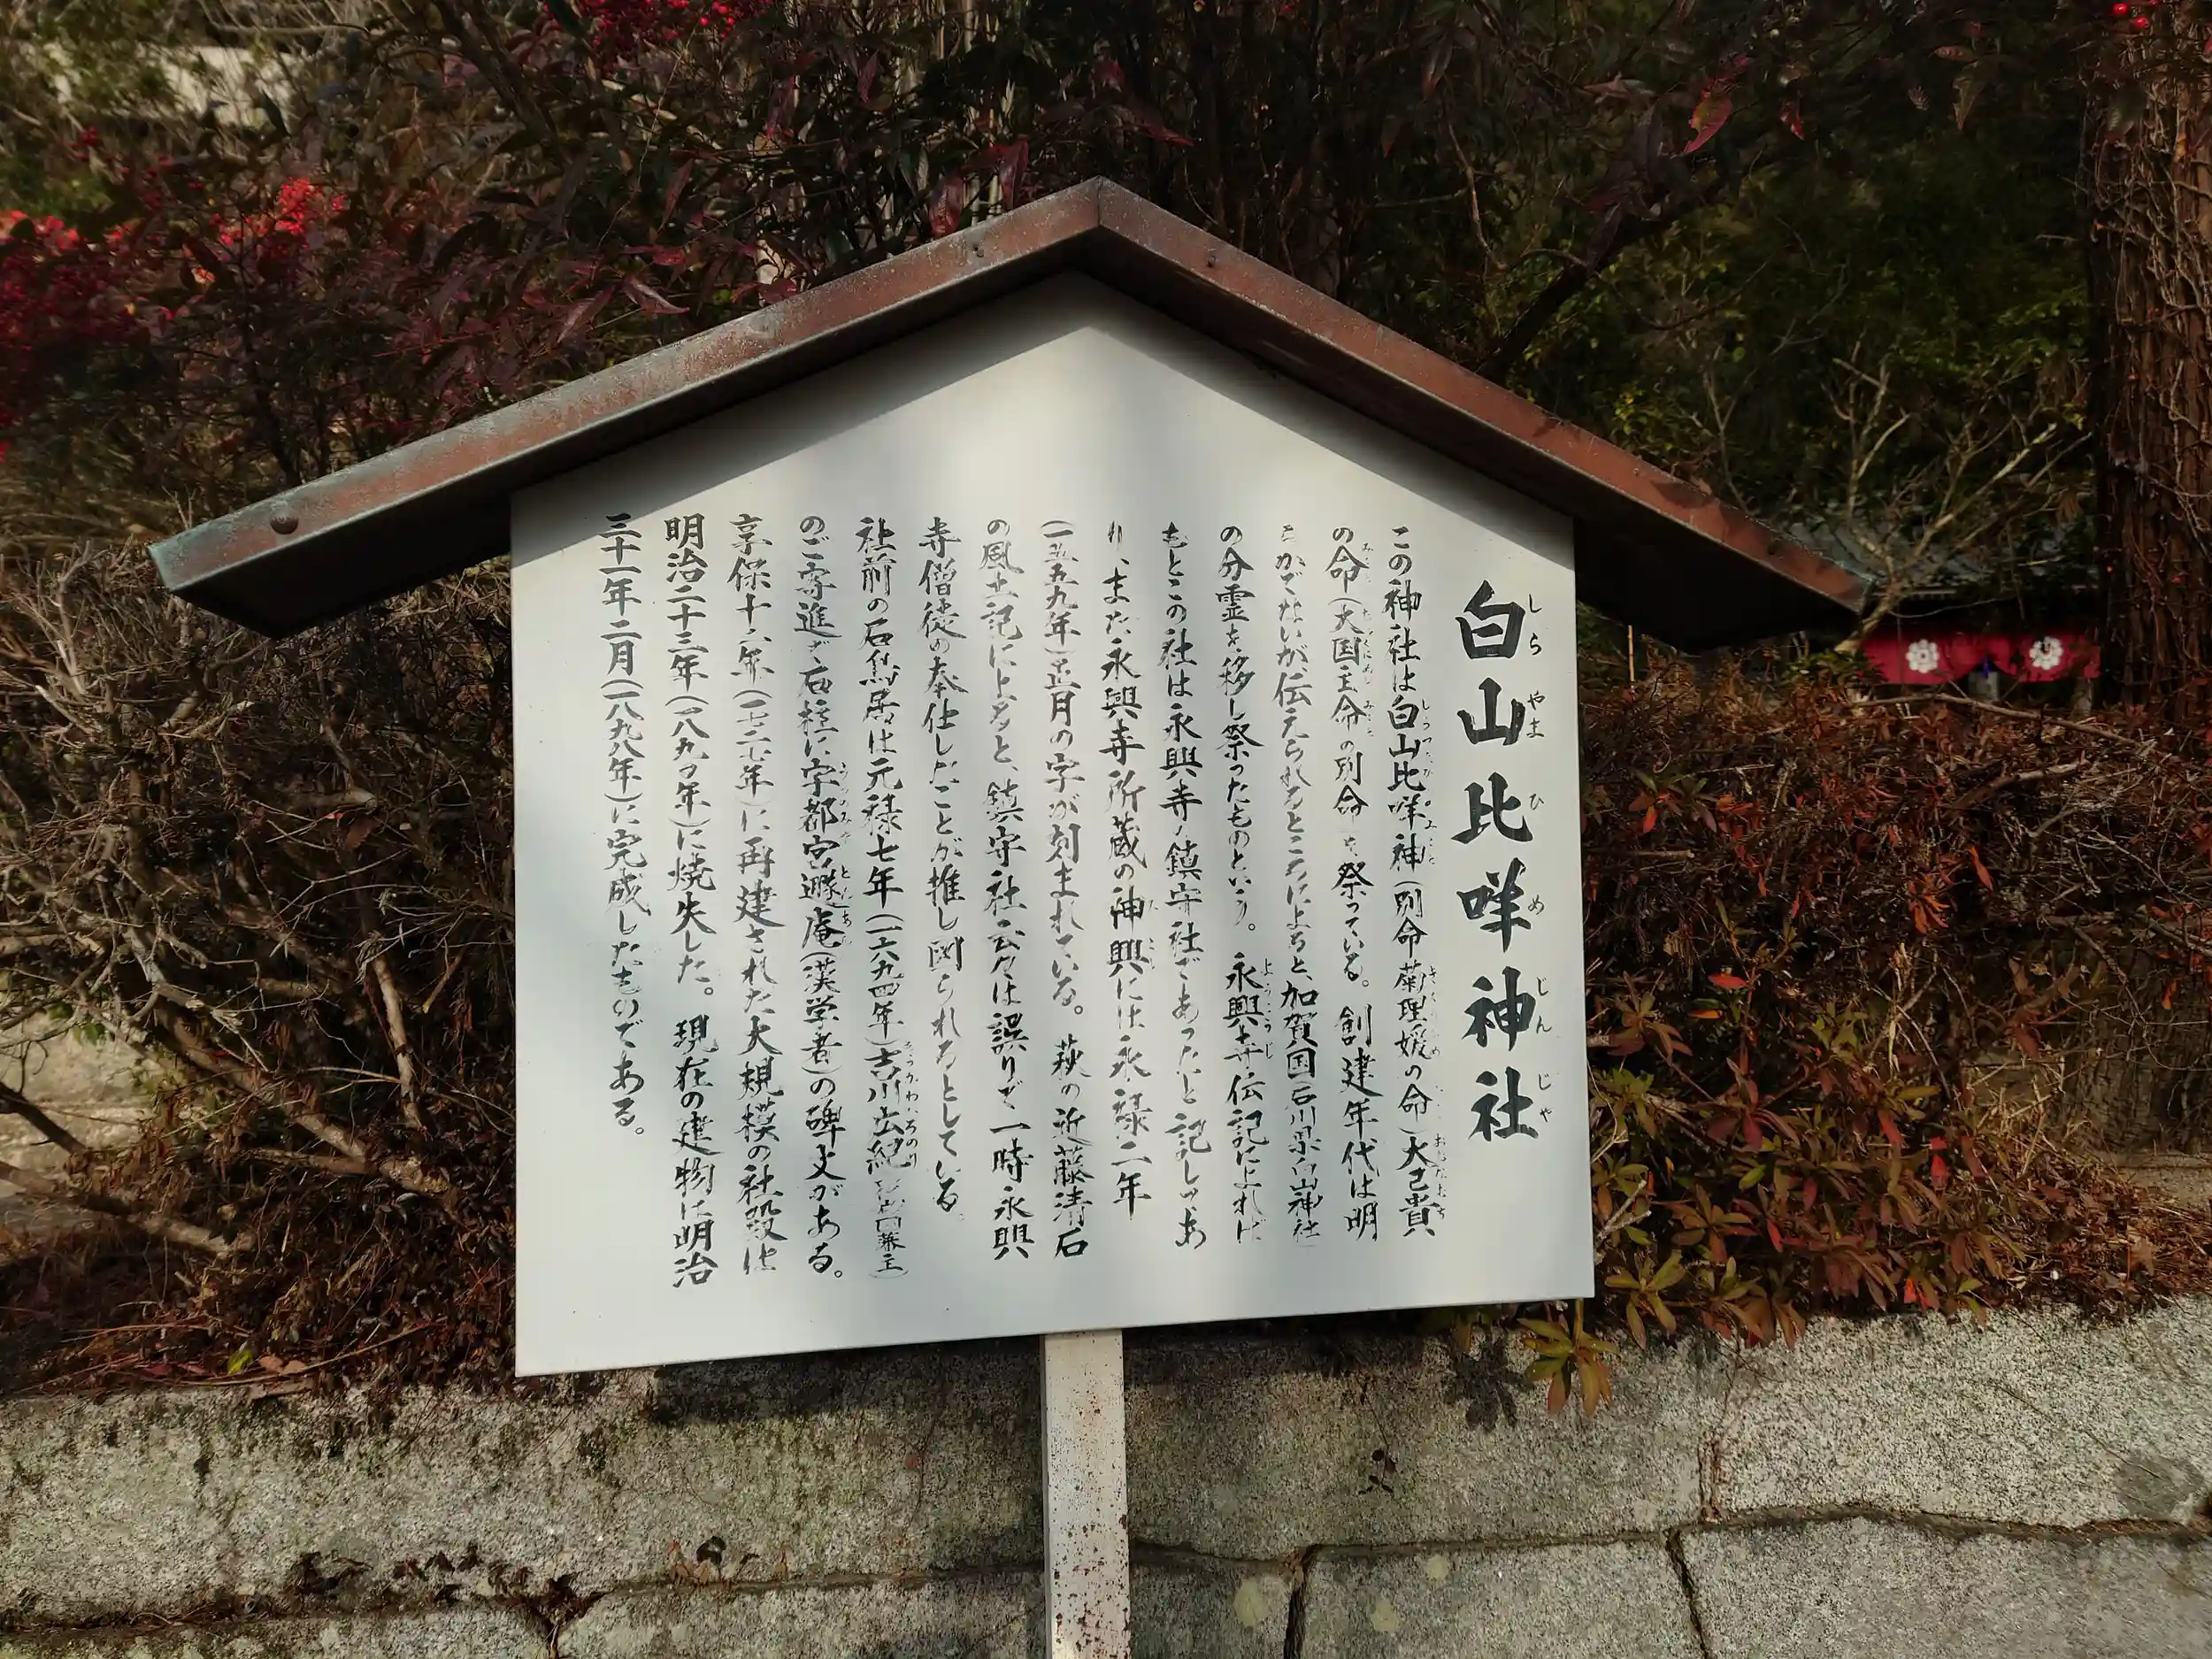 白山比咩神社
しらやまひめじんじゃ
この神社は白山比咩神(別命菊理媛の命)大己貴
の命(大国主命の別命)を祭っている。創建年代は明
らかでないが伝えられるところによると、加賀国石川県白山神社
の分霊を移し祭ったものという。永興寺伝記によれば
もとこの社は永興寺ノ鎮守社であったと記してあ
り、また永興寺所蔵の神輿には永禄二年
(一五五九年)正月の字が刻まれている。萩の近藤清石
の風土記によると、鎮守社云々は誤りで一時永興
寺僧徒の奉仕したことが推し図られるとしている。
社前の石鳥居は元禄七年(一六九四年)吉川広紀
のご寄進で石柱に宇都宮遯庵(漢学者)の碑文がある。
享保十二年(一七二七年)に再建された大規模の社殿は
明治二十三年(一八九〇年)に焼失した。現在の建物は明治
三十一年二月(一八九八年)に完成したものである。